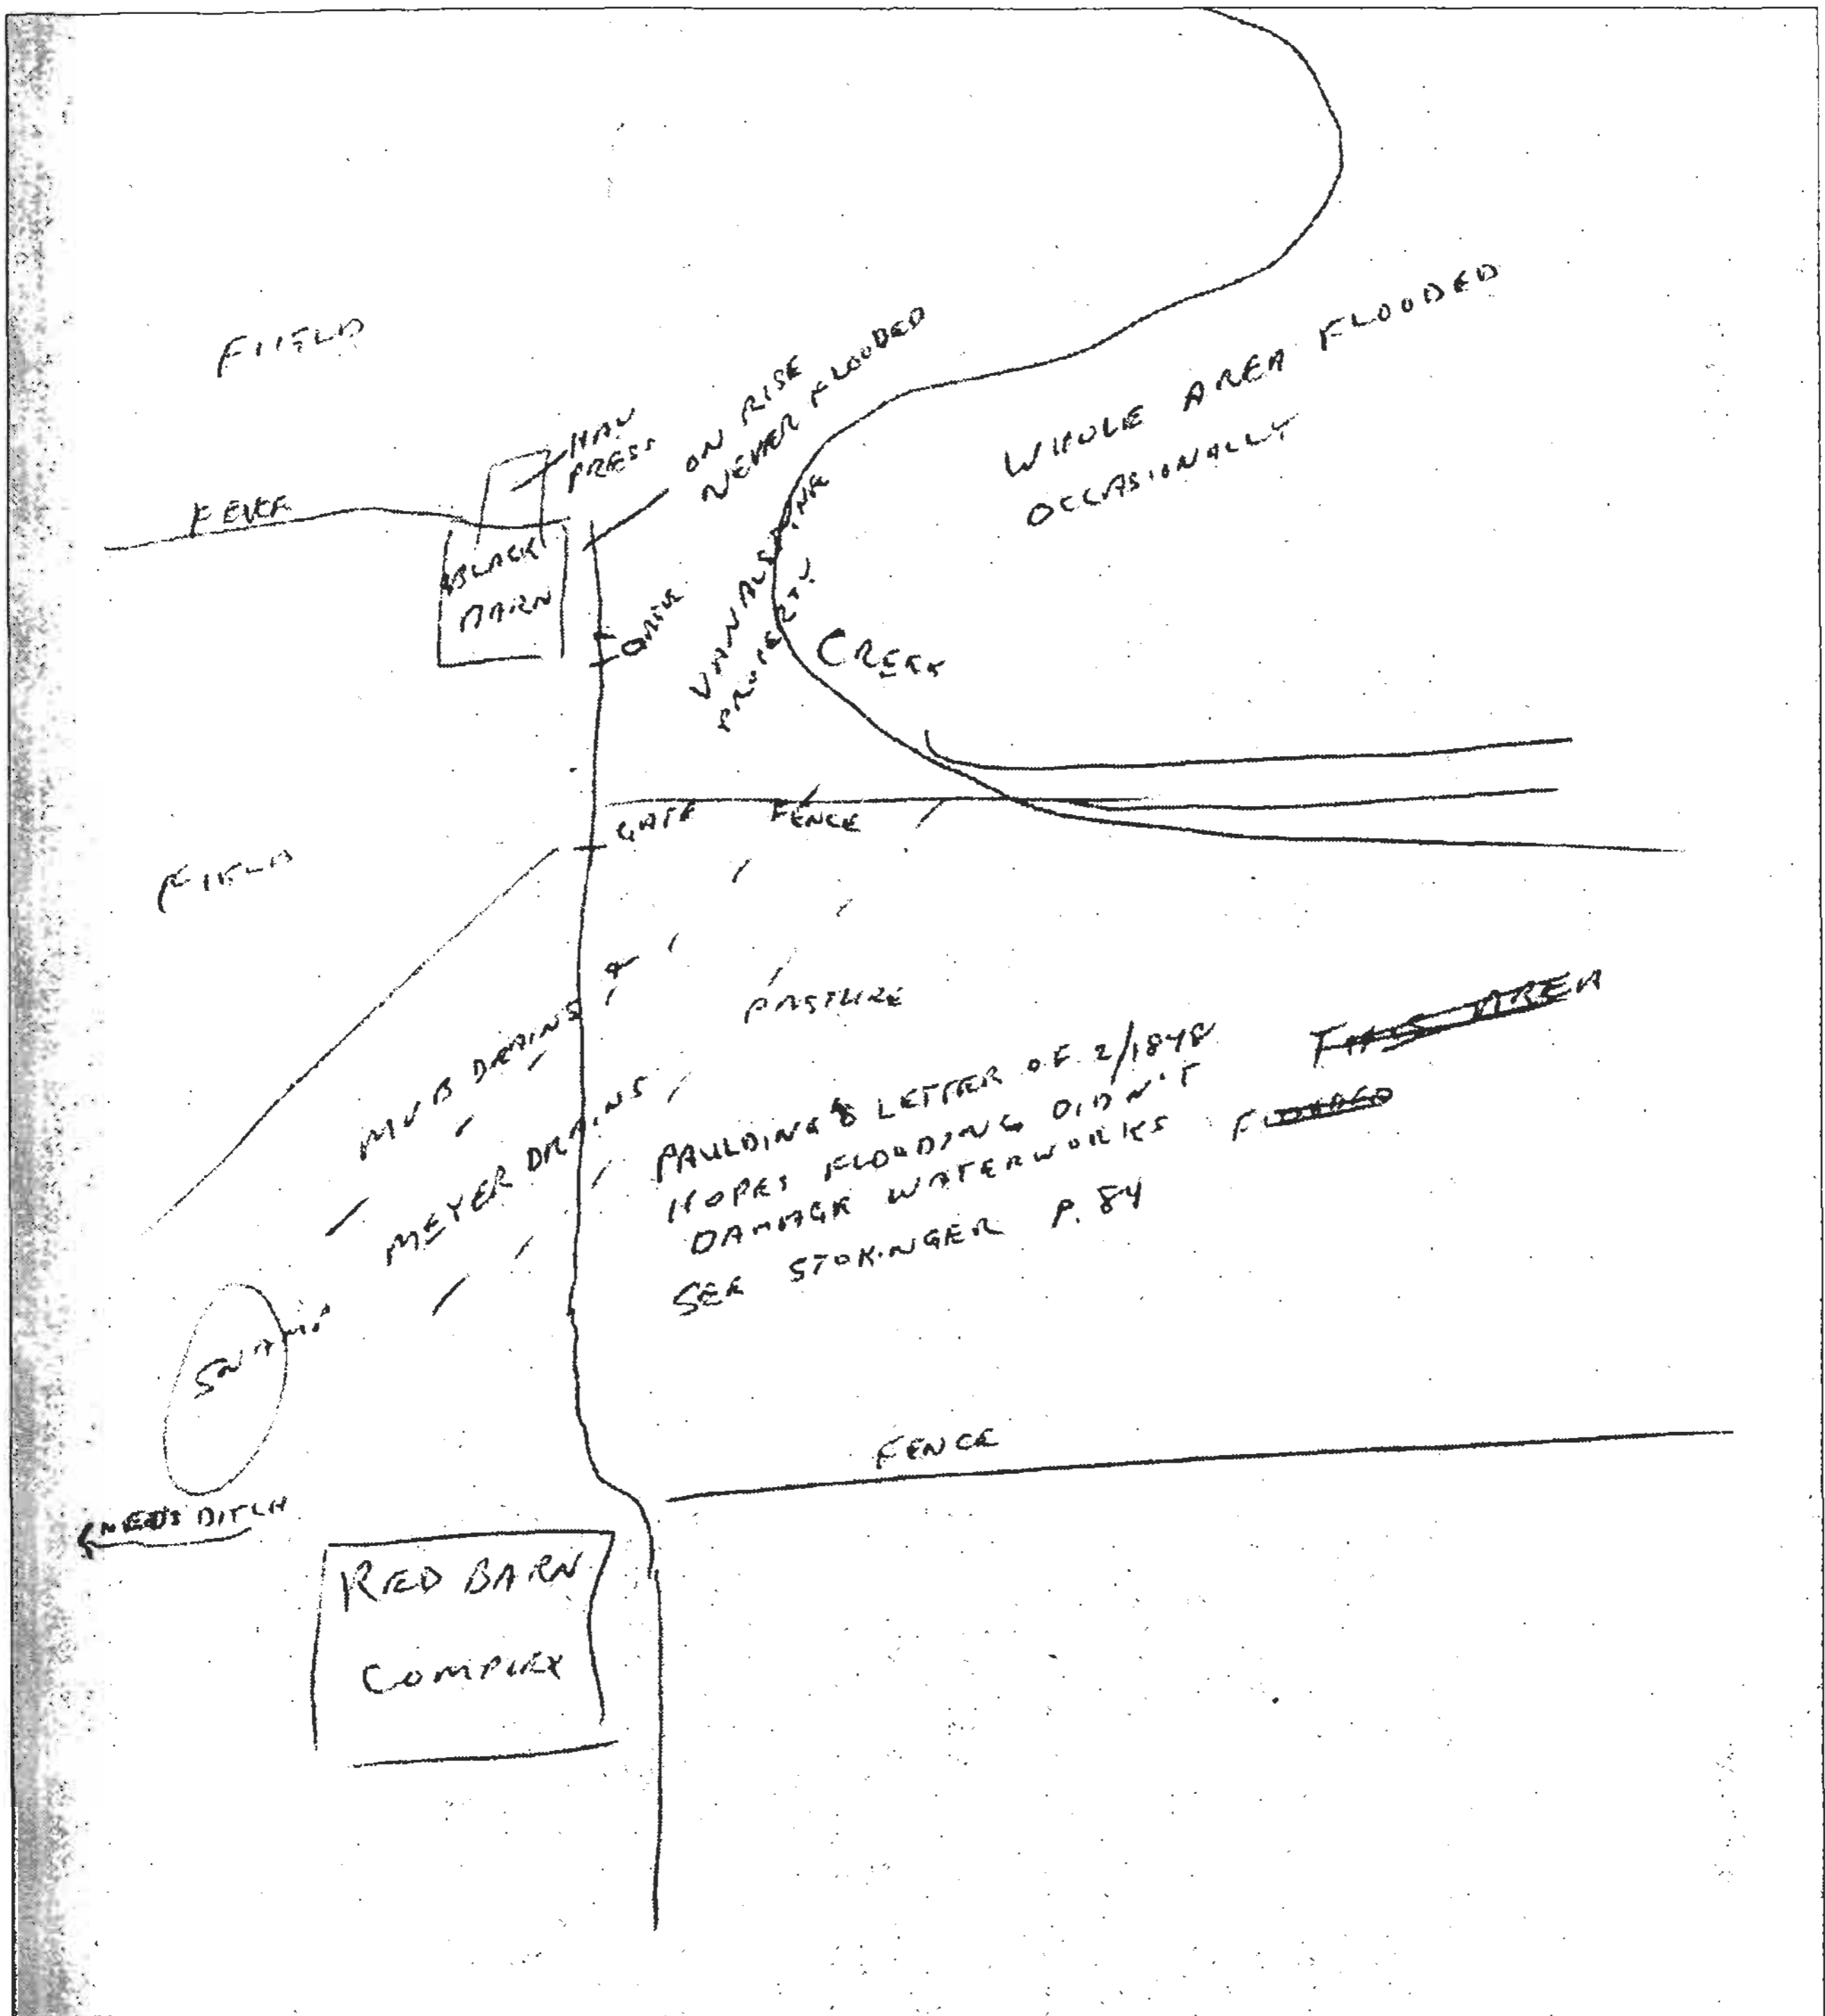 FIELD
HAY
PRESS
ON RISE
NEVER FLOODED
WHOLE AREA FLOODED
OCCASIONALLY
FENCE
BLACK
BARN
VANALSTINE
PROPERTY
CREEK
GATE
FENCE
FIELD
MVB DRAINS
PASTURE
MEYER DRAINS
THIS AREA
FLOODED
PAULDING'S LETTER OF 2/1848
HOPES FLOODING DIDN'T
DAMAGE WATERWORKS
SEE STOKINGER P. 84
SWAMP
FENCE
DITCH
RED BARN
COMPLEX